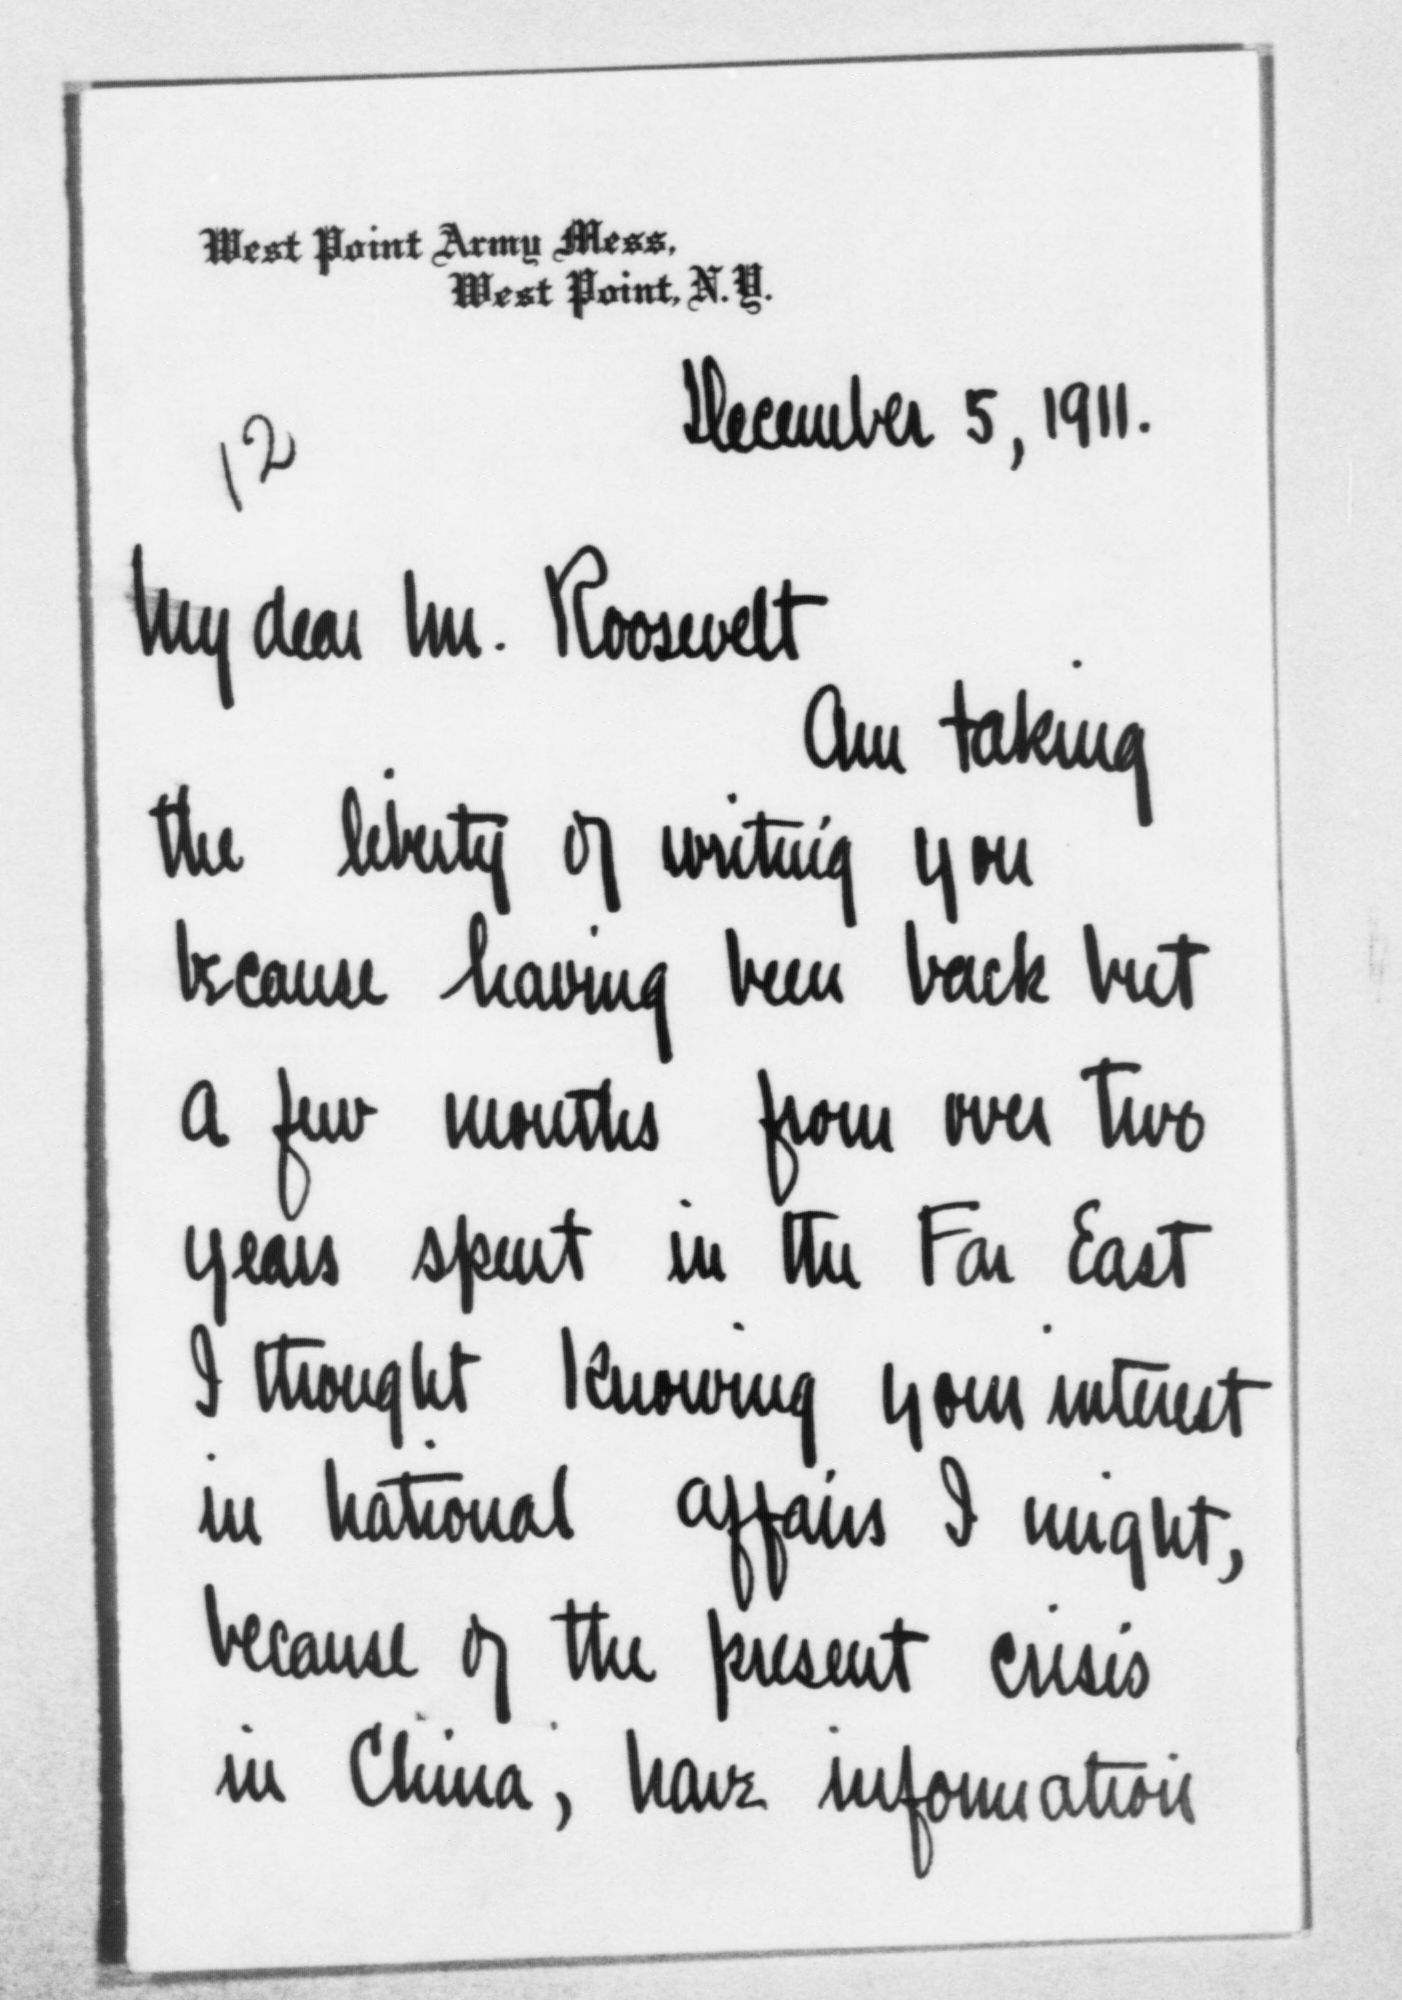 West Point Army Mess,
West Point, N.Y.
December 5, 1911.
12
My dear Mr. Roosevelt
Am taking
the liberty of writing you
because having been back but
a few months from over two
years spent in the Far East
I thought knowing your interest
in national affairs I might,
because of the present crisis
in China, have information